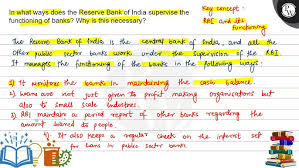 In what ways does the Reserve Bank of India supervise the
functioning of banks? Why is this necessary?
Key concept:
RBI and its
functioning
The Reserve Bank of India is the central bank of India, and all the
Other public sector banks work under the supervision of the RBI
It manages the functioning of the banks in the following ways:
1) It monitors the banks in maintaining the cash balance.
2) Loans are not just given to profit making organisations but
also to small scale industries.
3) RBI maintains a period report of other banks regarding the
amount loaned to people.
4. It also keeps a regular check on the interest set
for loans in public sector banks.